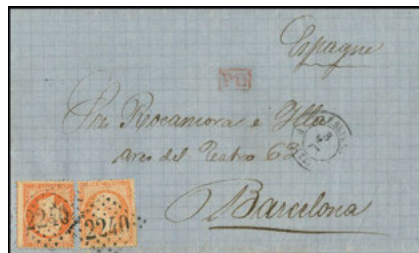 Espagne
PD
Sres Rocamora e
Arco del Teatro 63
Barcelona
2240
2240